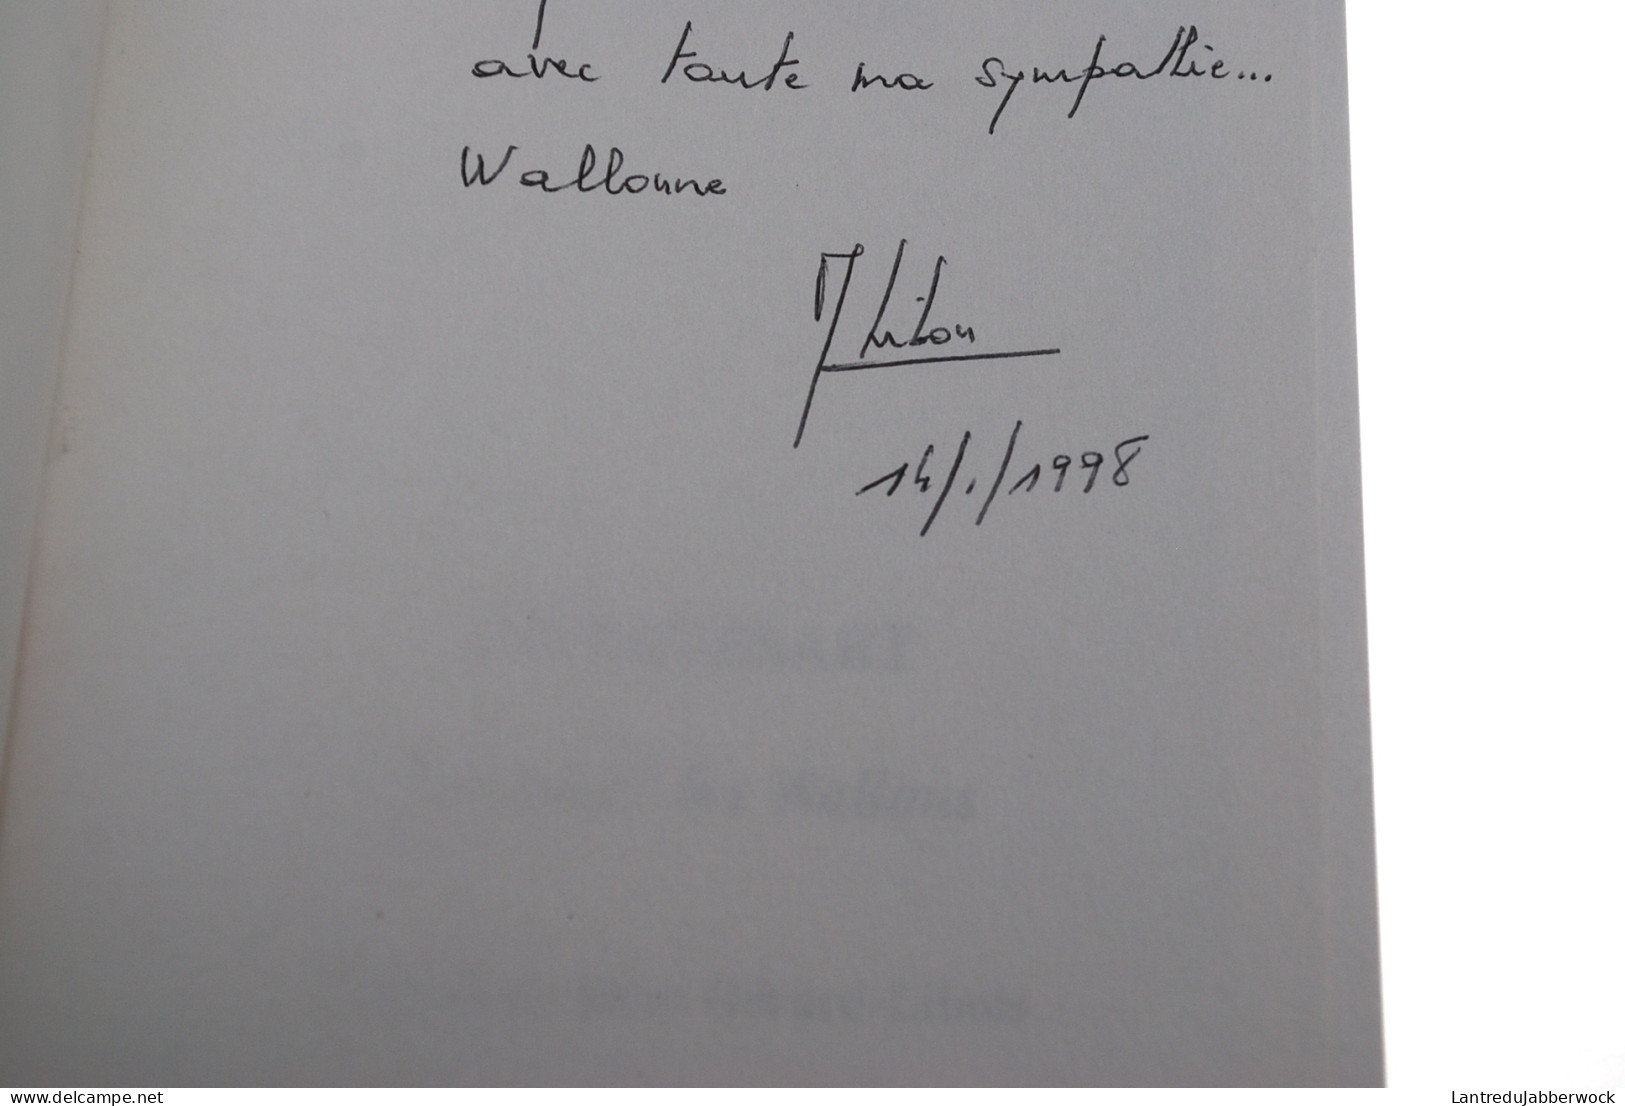 avec toute ma sympathie...
Wallonne
14/./1998
delcampe.net
LantreduJabberwock